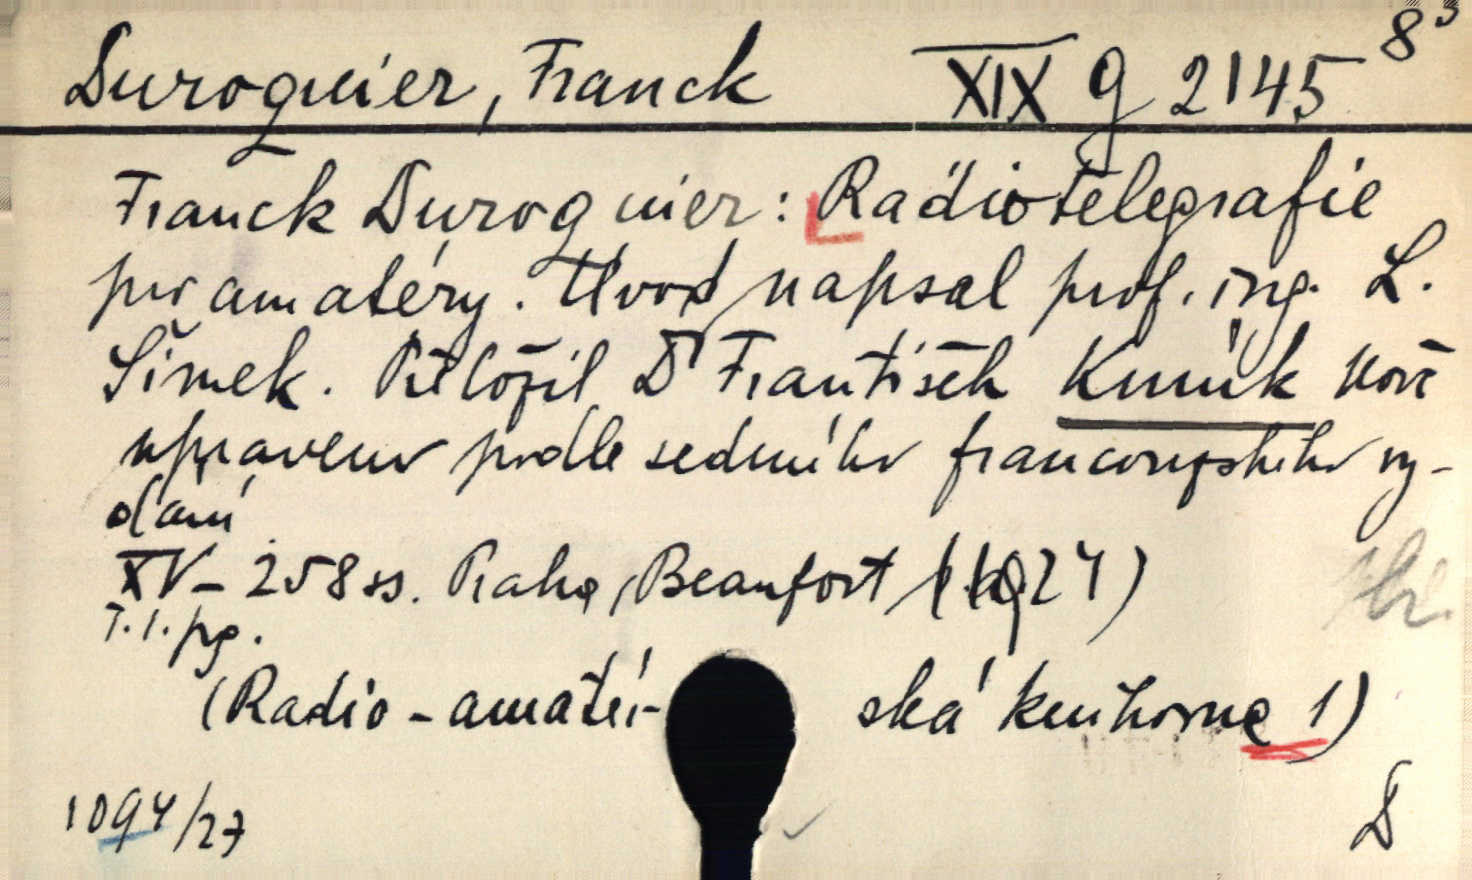 Duroquier, Franck XIX g 2145 8°
Franck Duroquier: Radiotelegrafie
pro amatéry. Úvod napsal prof. ing. L.
Šimek. Přeložil Dr František Kuník Nově
upraveno podle sedmého francouzského vy-
dání
XV - 258 ss. Praha, Beaufort (1924)
T. 1. pg.
(Radio-amatér- ská knihovna 1)
1094/27 D